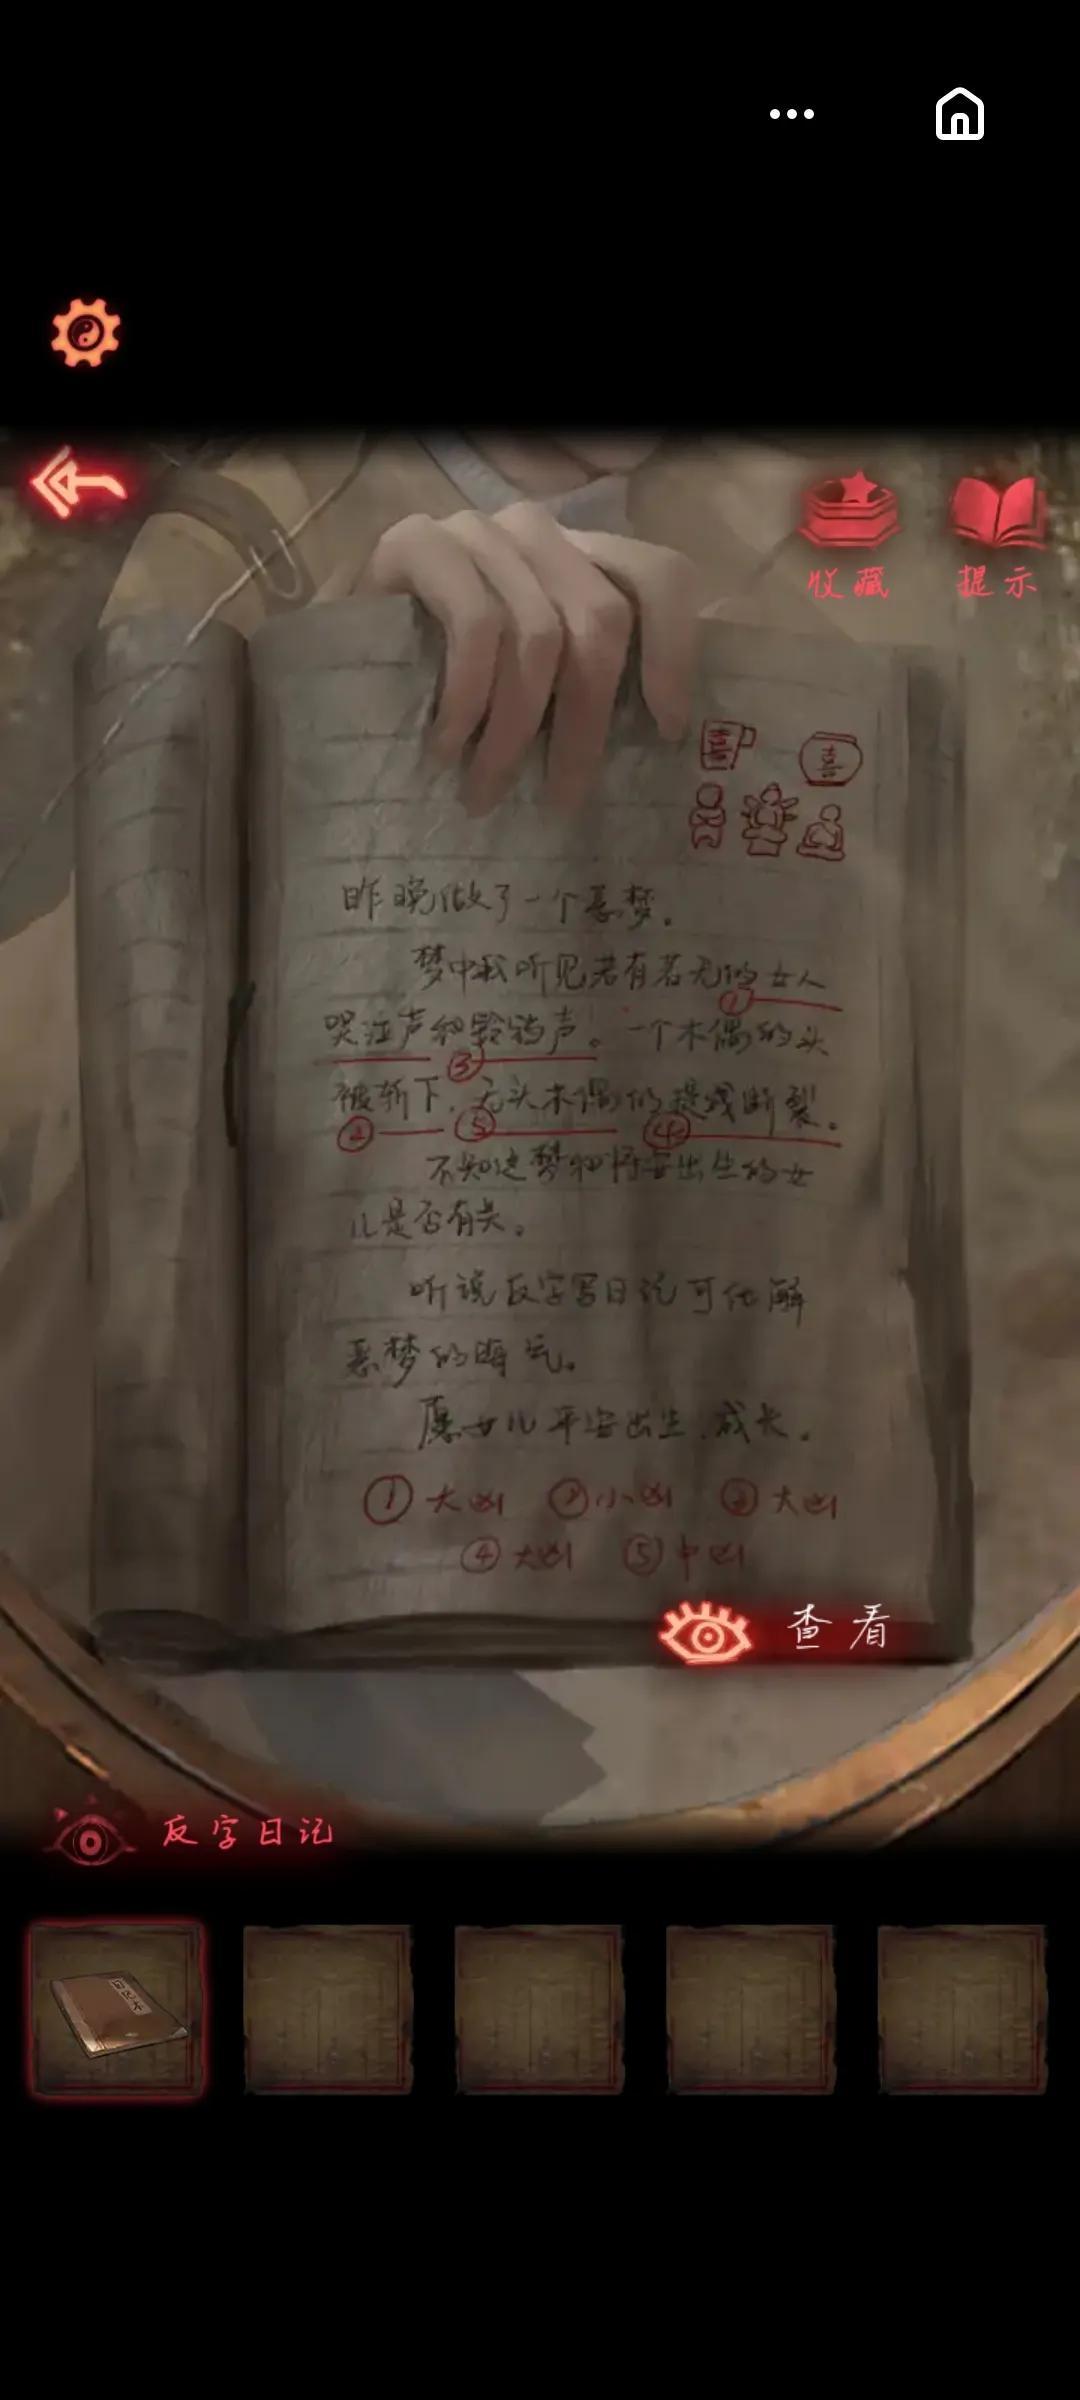 收藏 提示
喜 喜
昨晚做了一个恶梦。
梦中我听见若有若无的女人
①
哭泣声和铃铛声。一个木偶的头
③
被斩下,无头木偶的提线断裂。
② ⑤ ④
不知这梦和将要出生的女
儿是否有关。
听说反字写日记可化解
恶梦的晦气。
愿女儿平安出生,成长。
①大凶 ②小凶 ③大凶
④大凶 ⑤中凶
查看
反字日记
日记本